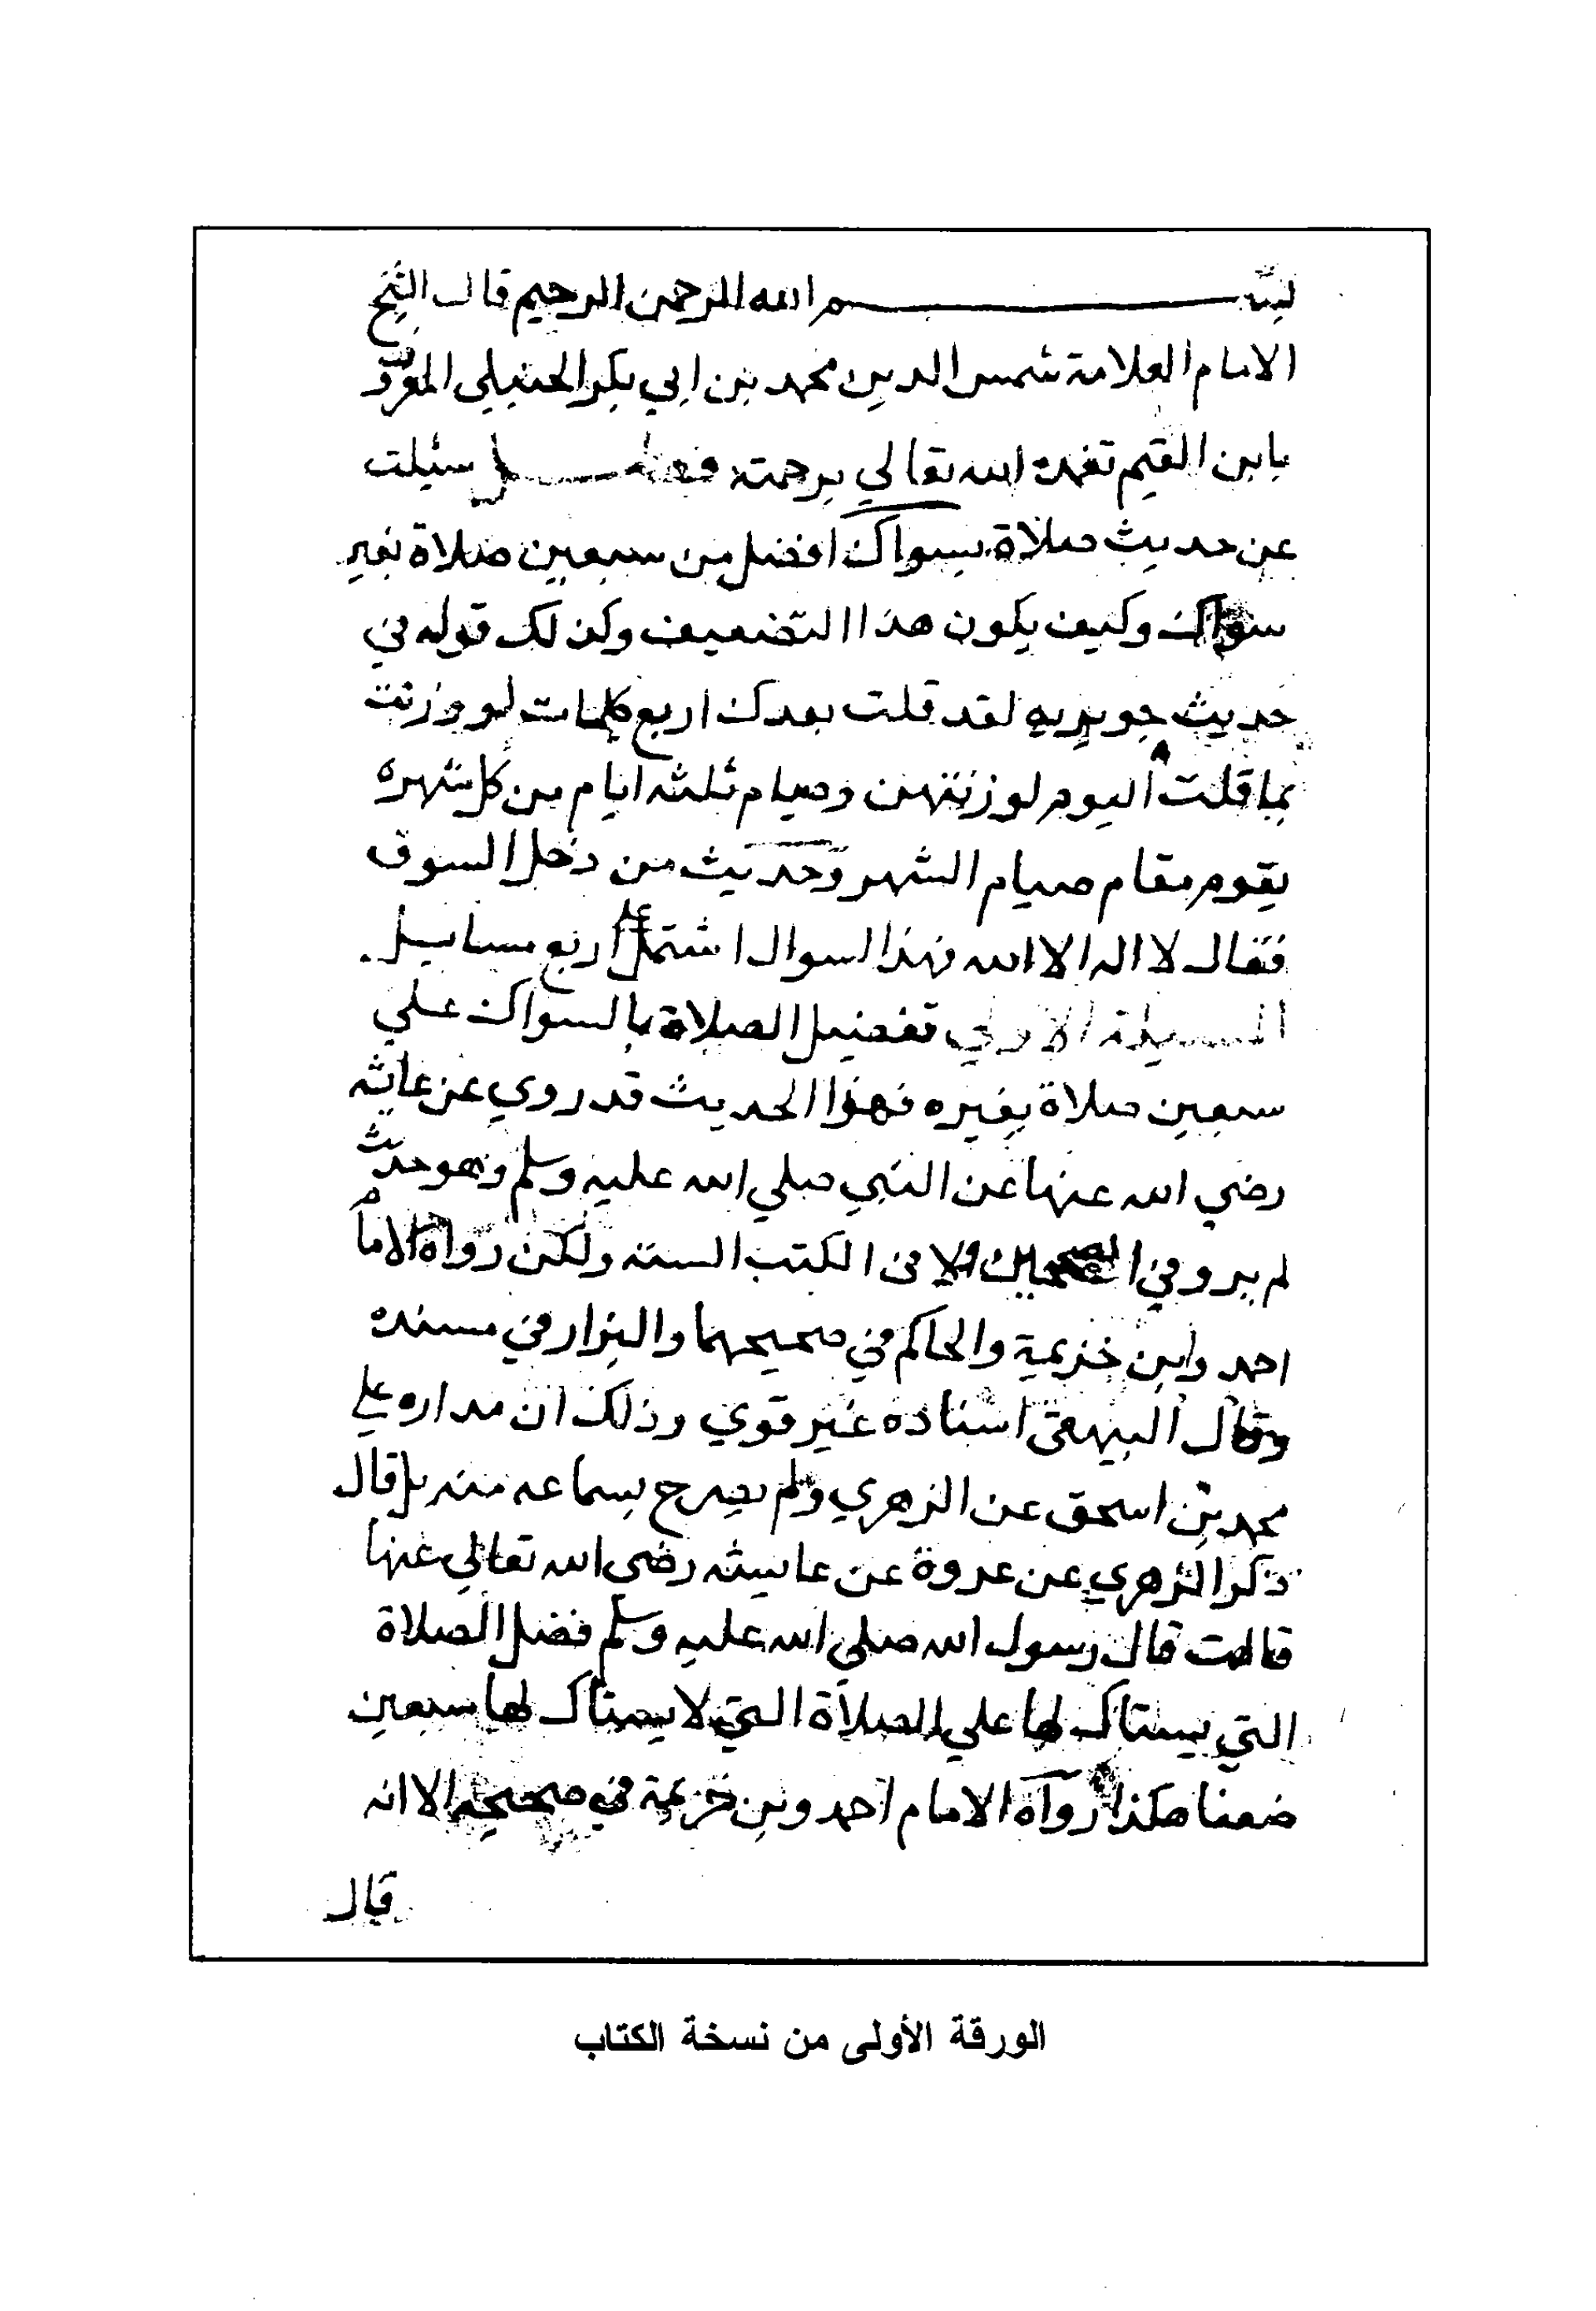 بسم الله الرحمن الرحيم قال الشيخ
الامام العلامة شمس الدين محمد بن ابي بكر الحنبلي المعروف
بابن القيم تغمده الله تعالي برحمته سئلت
عن حديث صلاة بسواك افضل من سبعين صلاة بغير
سواك وكيف يكون هذا التضعيف وكذلك قوله في
حديث جويريه لقد قلت بعدك اربع كلمات لو وزنت
بما قلت اليوم لوزنتهن وصيام ثلثه ايام من كل شهره
يقوم مقام صيام الشهر وحديث من دخل السوق
فقال لا اله الا الله فهذا السوال اشتمل على اربع مسايل
المسيلة الاولي تفضيل الصلاة بالسواك علي
سبعين صلاة بغيره فهذا الحديث قد روي عن عايشه
رضي الله عنها عن النبي صلي الله عليه وسلم وهو حديث
لم يرو في الصحيحين ولا في الكتب السته ولكن رواه الامام
احمد وابن خزيمة والحاكم في صحيحهما والبزار في مسنده
وقال البيهقي اسناده غير قوي وذلك ان مداره علي
محمد بن اسحق عن الزهري ولم يصرح بسماعه منه بل قال
ذكر الزهري عن عروة عن عايشه رضي الله تعالي عنها
قالت قال رسول الله صلي الله عليه وسلم فضل الصلاة
التي يستاك لها علي الصلاة التي لا يستاك لها سبعين
ضعفا هكذا رواه الامام احمد وبن خزيمة في صحيحه الا انه
قال
الورقة الأولى من نسخة الكتاب